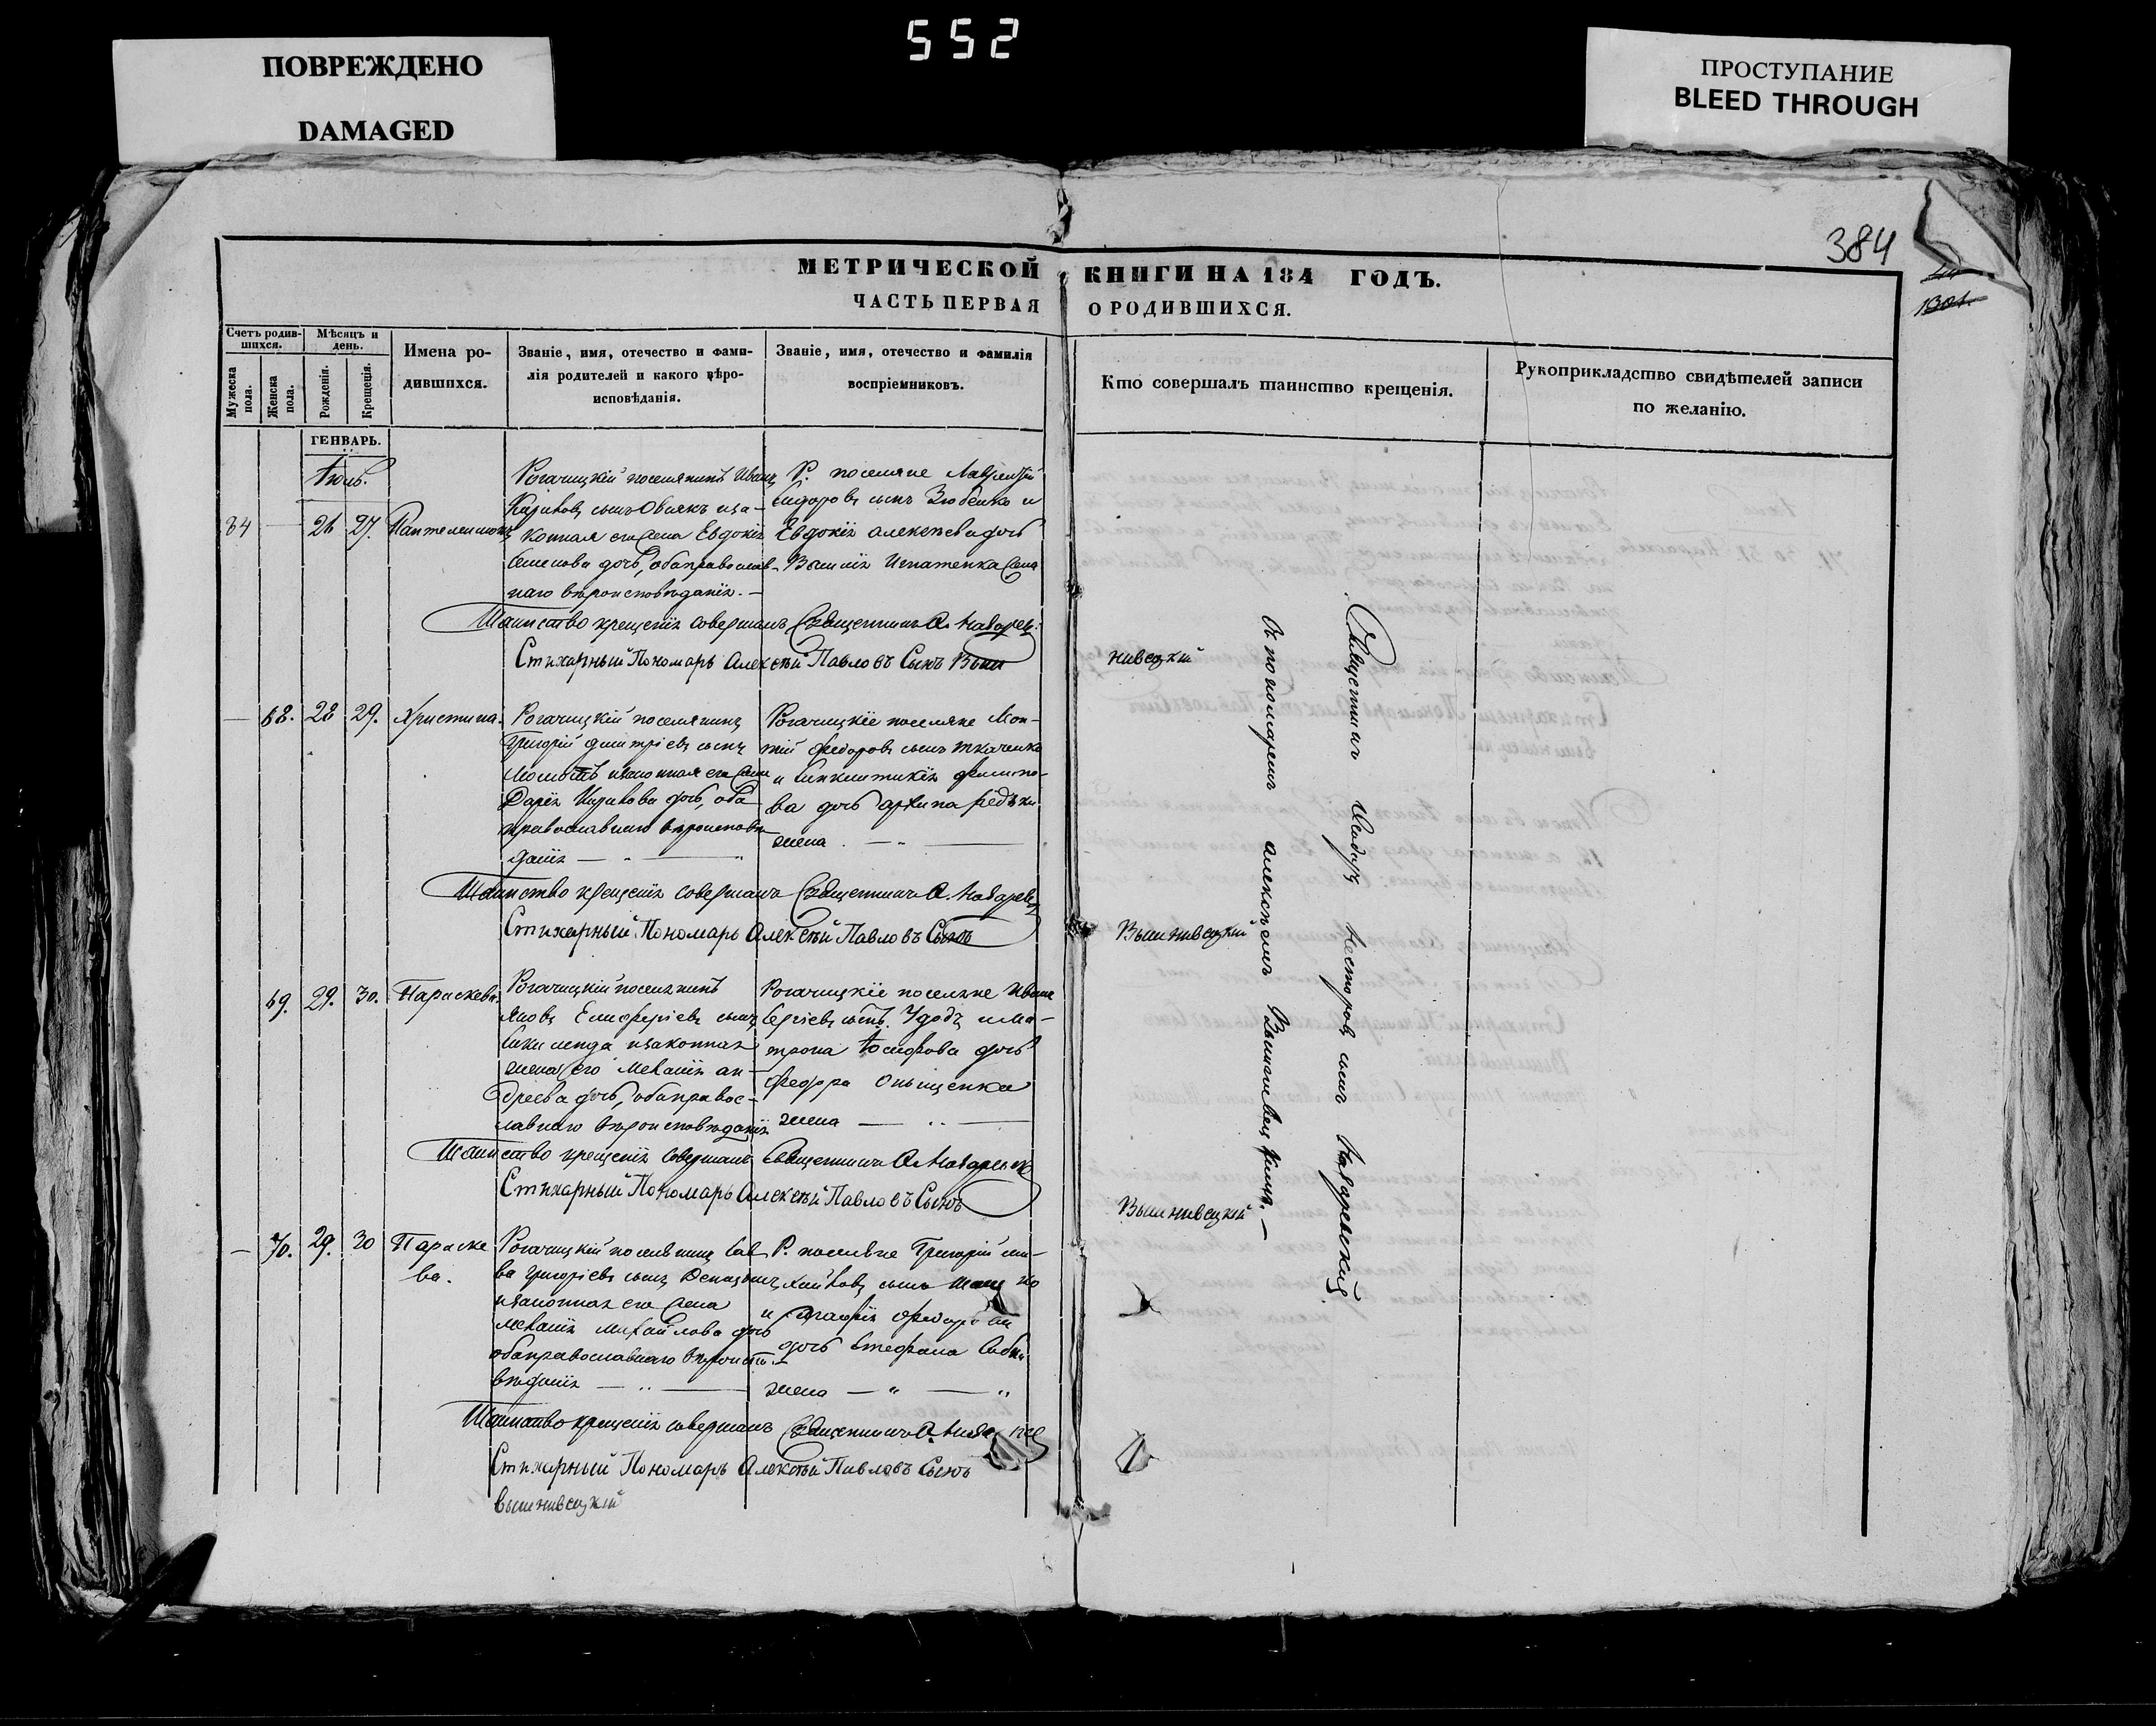 552
ПОВРЕЖДЕНО
DAMAGED
ПРОСТУПАНИЕ
BLEED THROUGH
384
1301.
МЕТРИЧЕСКОЙ КНИГИ НА 184 ГОДЪ.
ЧАСТЬ ПЕРВАЯ О РОДИВШИХСЯ.
Счетъ родив-
шихся.
Мужеска пола.
Женска пола.
Мѣсяцъ и
день.
Рожденія.
Крещенія.
Имена ро-
дившихся.
Званіе, имя, отечество и фами-
лія родителей и какого вѣро-
исповѣданія.
Званіе, имя, отечество и фамилія
воспріемниковъ.
Кто совершалъ таинство крещенія.
Рукоприкладство свидѣтелей записи
по желанію.
ГЕНВАРЬ.
Іюль.
84 — 26 27. Пантелеимонъ
Рогачицкій поселянинъ Иванъ
сынъ иза-
конная его жена Евдокія
Семенова дочь, оба православ-
наго вѣроисповѣданія. —
Р. поселяне Лаврентій
Сидоровъ сынъ Зюбенко и
Евдокія Алексѣева дочь
Игнатенка жена
Таинство крещенія совершалъ Священникъ
Стихарный Пономарь Алексѣй Павловъ Сынъ Выш
нивецкій
— 68. 28 29. Христина.
Рогачицкій поселянинъ
Григорій Дмитріевъ сынъ
изаконная его жена
Дарія дочь, оба
православнаго вѣроисповѣ-
данія — " —
Рогачицкіе поселяне
Федоровъ сынъ Ткаченко
и Филипо-
ва дочь Архипа Редьки
жена . — " —
Таинство крещенія совершалъ Священникъ
Стихарный Пономарь Алексѣй Павловъ Сынъ
Вышнивецкій
69. 29. 30. Параскева.
Рогачицкій поселянинъ
Яковъ Елиферіевъ сынъ
изаконная
жена его Меланія Ан-
дреева дочь, оба правос-
лавнаго вѣроисповѣданія
Рогачицкіе поселяне Иванъ
Сергіевъ сынъ и Ма-
трона Іосифова дочь
Федора Онищенка
жена — .. —
Таинство крещенія совершалъ Священникъ
Стихарный Пономарь Алексѣй Павловъ Сынъ
Вышнивецкій
— 70. 29. 30 Параске
ва.
Рогачицкій поселянинъ Сав-
ва Григоріевъ сынъ
изаконная его жена
Меланія Михайлова дочь
оба православнаго вѣроиспо-
вѣданія — .. —
Р. поселяне Григорій Ми-
хайловъ сынъ
и Федорова
дочь Стефана
жена — " — "
Таинство крещенія совершалъ Священникъ
Стихарный Пономарь Алексѣй Павловъ Сынъ
вышнивецкій
Священникъ Несторовъ сынъ
съ пономаремъ Алексѣемъ Вышнивецкимъ. —